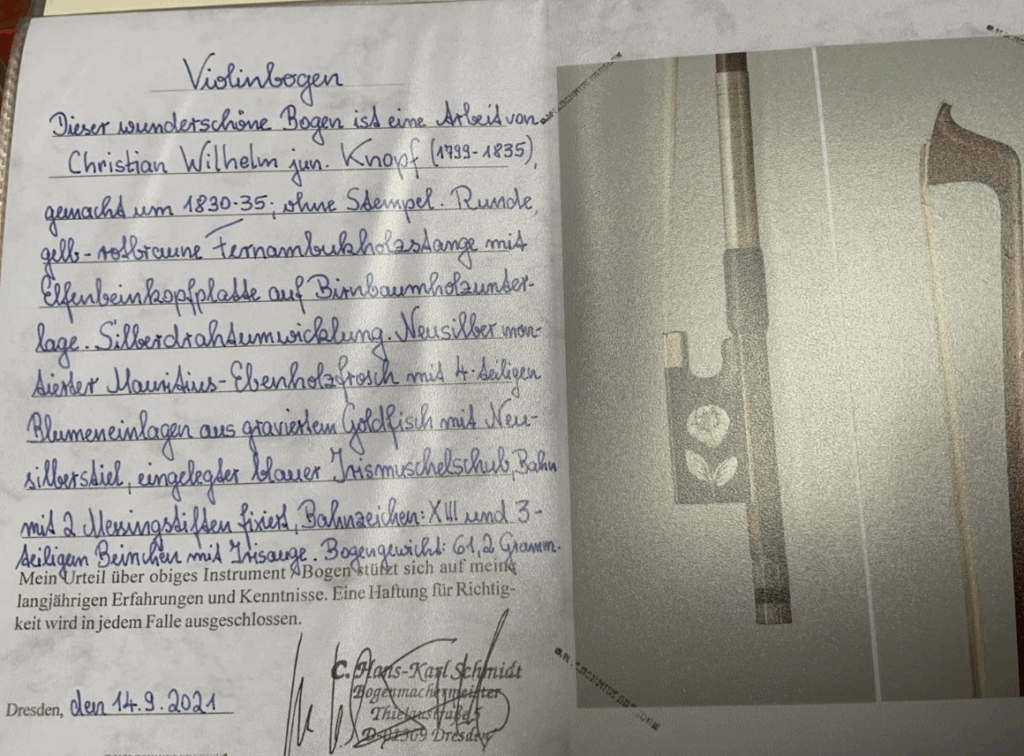 Violinbogen
Dieser wunderschöne Bogen ist eine Arbeit von
Christian Wilhelm jun. Knopf (1799-1835),
gemacht um 1830-35; ohne Stempel. Runde,
gelb-rotbraune Fernambukholzstange mit
Elfenbeinkopfplatte auf Birnbaumholzunter-
lage. Silberdrahtumwicklung. Neusilber mon-
tierter Mauritius-Ebenholzfrosch mit 4-teiligen
Blumeneinlagen aus graviertem Goldfisch mit Neu-
silberstiel, eingelegter blauer Irismuschelschub, Bahn
mit 2 Messingstiften fixiert, Bahnzeichen: XIII und 3-
teiligem Beinchen mit Irisauge. Bogengewicht: 61,2 Gramm.
Mein Urteil über obiges Instrument / Bogen stützt sich auf meine
langjährigen Erfahrungen und Kenntnisse. Eine Haftung für Richtig-
keit wird in jedem Falle ausgeschlossen.
C. Hans-Karl Schmidt
Bogenmachermeister
Thielaustraße 5
Dresden
Dresden, den 14.9.2021